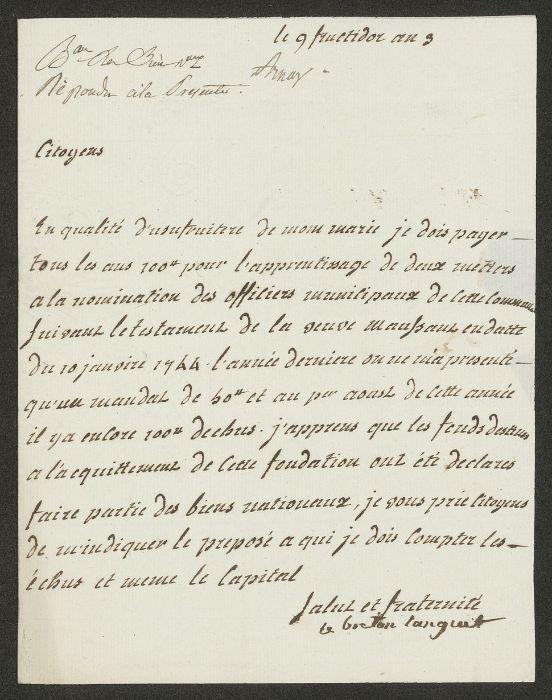 le 9 fructidor an 3
Bau des
Répondu à la Presente.
Citoyens
En qualité d'usufruitere de mom marie je dois payer
tous les ans 100# pour l'apprentissage de deux metiers
a la nomination des offitiers municipaux de cette Commune
suivant le testament de la veuve maussant en datte
du 10 janvire 1744. l'année derniere on ne m'a presenté
qu'un mandat de 50# et au per aoust de cette année
il y a encore 100# dechus. j'apprens que les fonds destines
a l'acquittement de cette fondation ont été declares
faire partie des biens nationaux, je vous prie Citoyens
de m'indiquer le preposé a qui je dois compter les
échus et meme le Capital
salut et fraternité
le breton languet